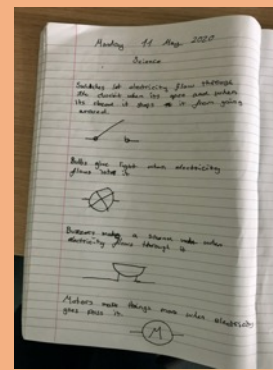 Monday 11 May 2020
Science
Switches let electricity flow through
the circuit when its open and when
its closed it stops it from going
around.
Bulbs give light when electricity
flows into it
Buzzers make a sound when
electricity flows through it
Motors make things move when electricity
goes pass it.
M